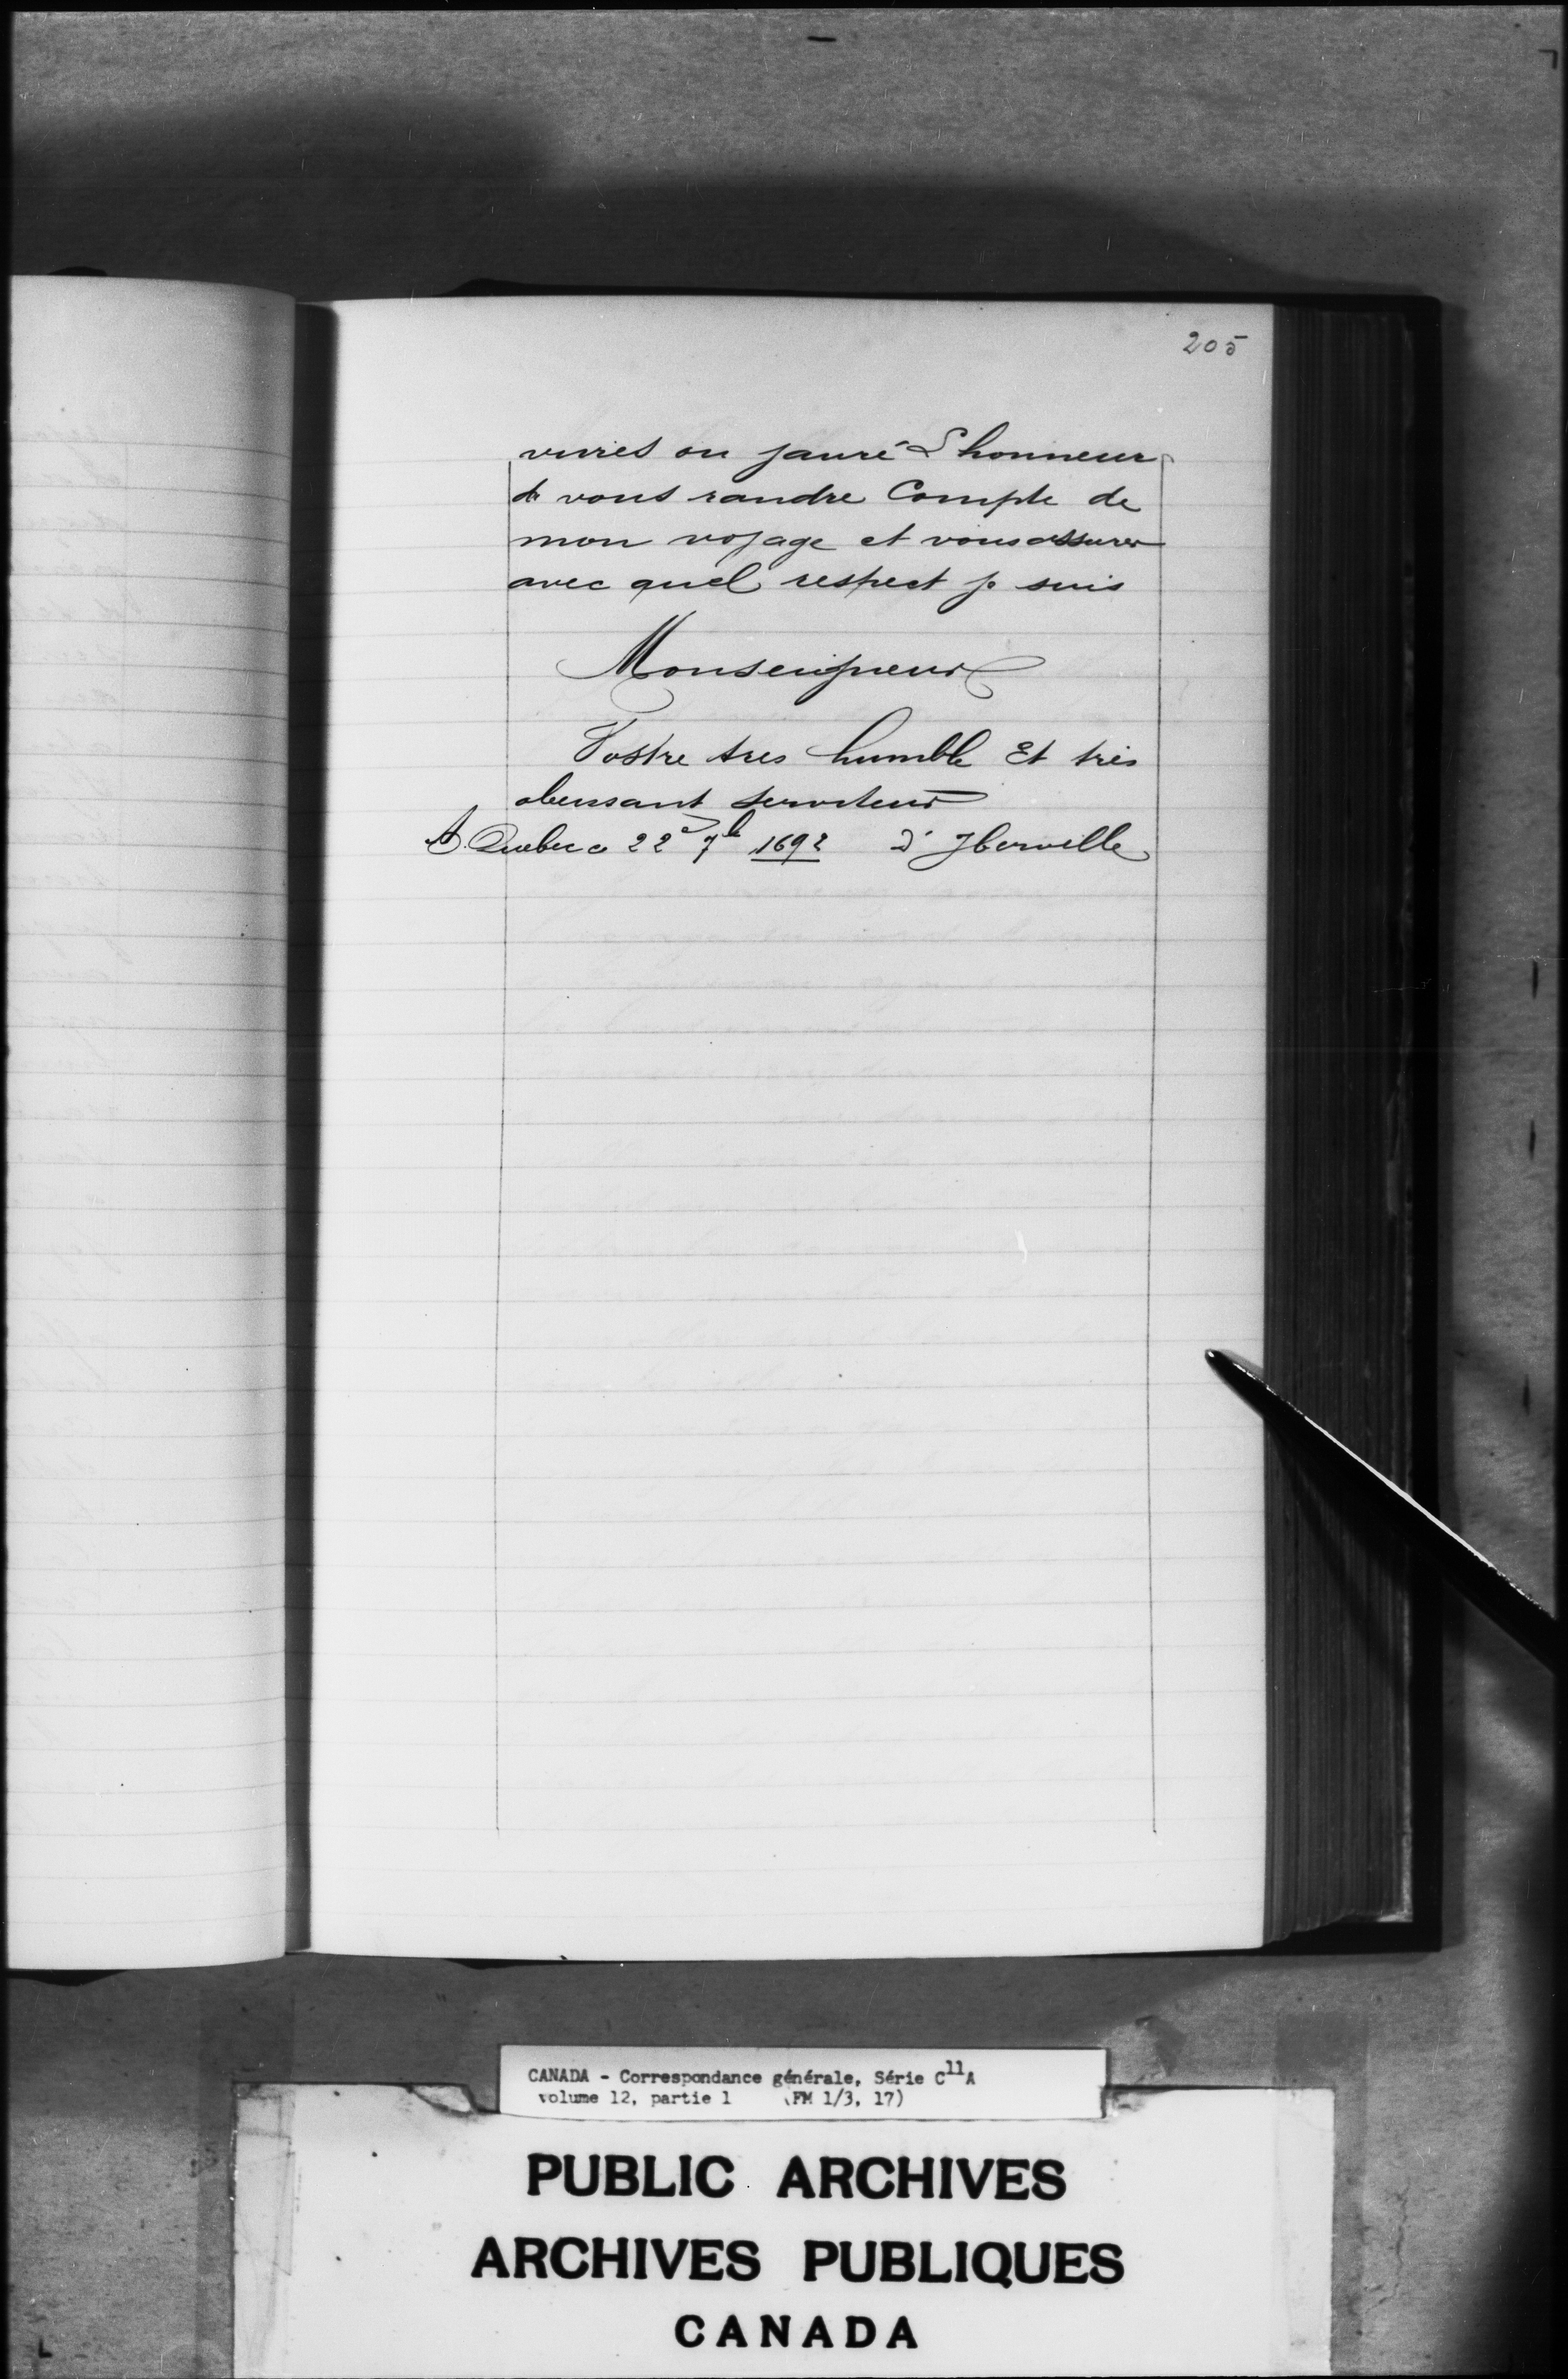 205
vivres ou jauré L'honneur
de vous randre Compte de
mon voyage et vous assurer
avec quel respect je suis
Monseigneur
Vostre tres humble Et très
obeissant serviteur
A. Quebec a 22e 7b 1692 D'Iberville
CANADA - Correspondance générale, Série C11A
volume 12, partie 1 (FM 1/3, 17)
PUBLIC ARCHIVES
ARCHIVES PUBLIQUES
CANADA